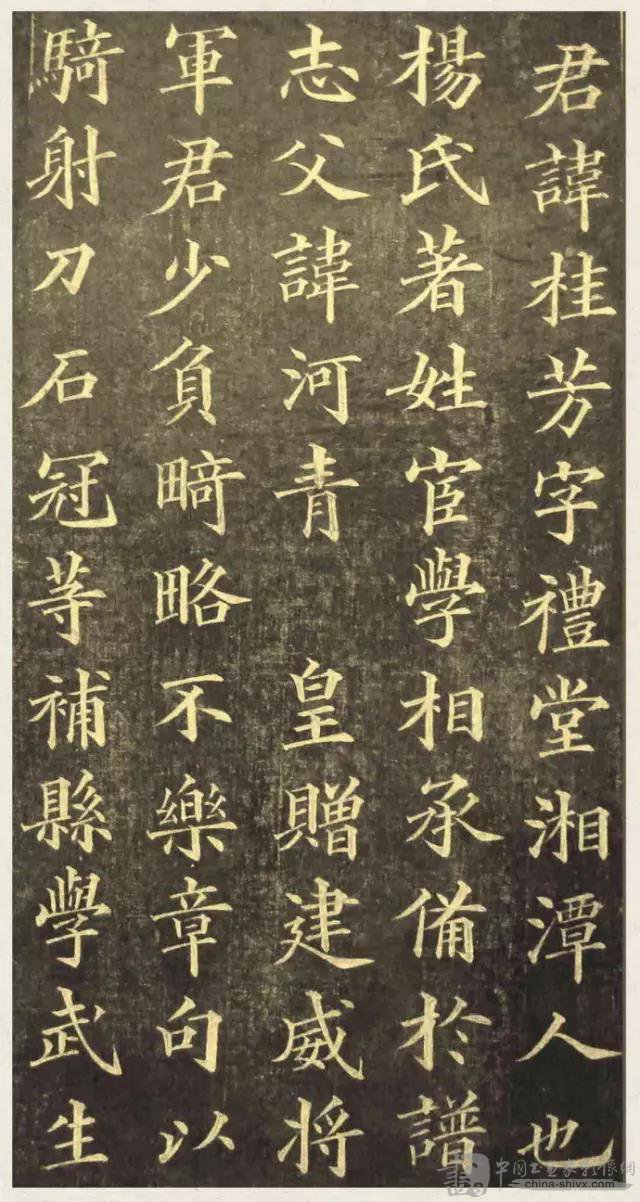 君諱桂芳字禮堂湘潭人也
楊氏著姓宦學相承備於譜
志父諱河青 皇贈建威将
軍君少負畸略不樂章句以
騎射刀石冠等補縣學武生
中國书画家影像網
china-shiyx.com